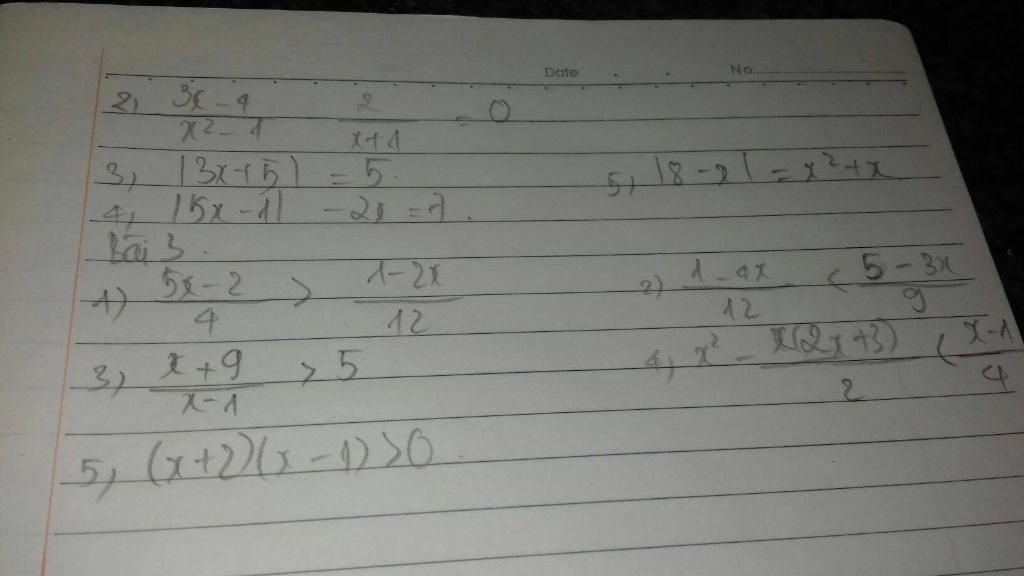 Date No.
2, (3x-4)/(x²-1) 2/(x+1) = 0
3, |3x+5| = 5. 5, |8-x| = x²+x
4, |5x-1| -2x = 7.
bài 3.
1) (5x-2)/4 > (1-2x)/12 2) (1-4x)/12 < (5-3x)/9
3) (x+9)/(x-1) > 5 4, x² - x(2x+3)/2 < (x-1)/4
5, (x+2)(x-1)>0.